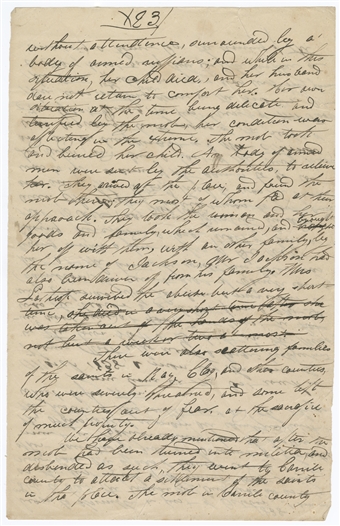 123
without attendance, surrounded by a
body of armed ruffians: and while in this
situation, her child died, and her husband
dare not return to comfort her. Her own
situation at the time being delicate and
by the mob, her condition was
in the extreme. The mob took
and buried her child. A body of armed
men were sent by the authorities, to relieve
her. They arrived at the place, and found the
mob there, most of whom fled at their
approach. They took the woman and
goods and family, which remained, and
her off with them, with an other family, by
the name of Jackson, Mr Jackson had
also been driven from his family. Mrs
survived the abuse but a very short
time
was taken
not but a
There were also scattering families
of the saints in Ray, Clay, and other counties,
who were severely threatened, and some left
the counties, out of fear, at the sacrifice
of much property.
We have already mentioned that after the
mob had been turned into militia, and
disbanded as such, they went to Carrole
county to attact a settlement of the saints
in that place. The mob in Carrole county